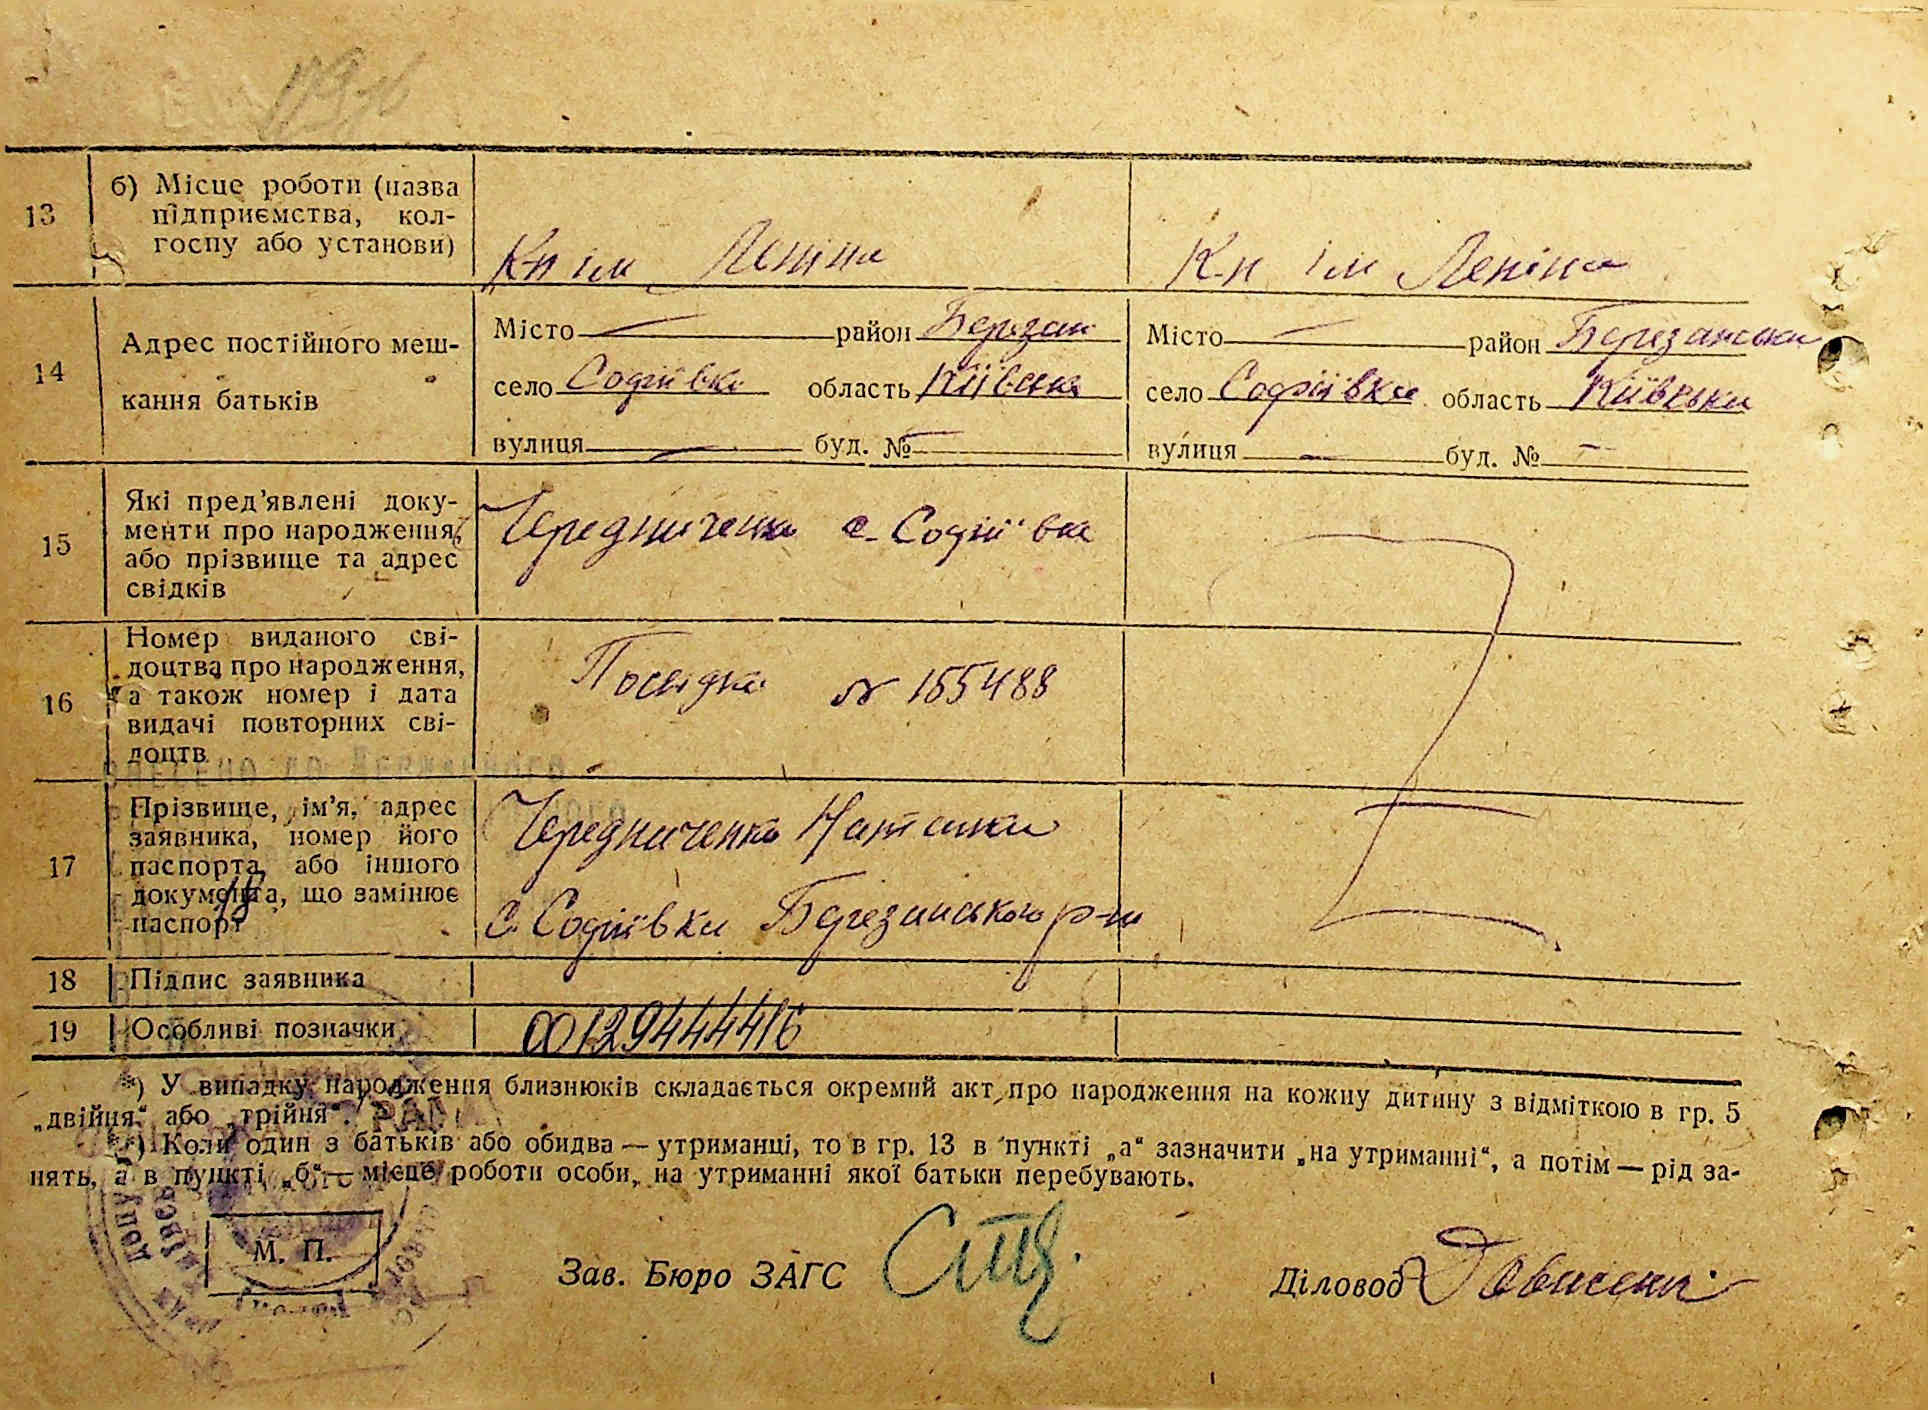 13
б) Місце роботи (назва
підприємства, кол-
госпу або установи)
К-п ім Леніна
К-п ім Леніна
14
Адрес постійного меш-
кання батьків
Місто — район Березан
село Софіївка область Київська
вулиця — буд. № —
Місто — район Березанськи
село Софіївка область Київська
вулиця — буд. № —
15
Які пред’явлені доку-
менти про народження,
або прізвище та адрес
свідків
Чередниченко с. Софіївка
16
Номер виданого сві-
доцтва про народження,
а також номер і дата
видачі повторних сві-
доцтв
№ 155488
17
Прізвище, ім’я, адрес
заявника, номер його
паспорта, або іншого
документа, що замінює
паспорт
Чередниченко Наталка
с. Софіївка Березанського р-н
18
Підпис заявника
19
Особливі позначки
00129444416
*) У випадку народження близнюків складається окремий акт про народження на кожну дитину з відміткою в гр. 5
„двійня“ або „трійня“.
**) Коли один з батьків або обидва — утриманці, то в гр. 13 в пункті „а“ зазначити „на утриманні“, а потім — рід за-
нять, а в пункті „б“ — місце роботи особи, на утриманні якої батьки перебувають.
М. П.
Зав. Бюро ЗАГС
Діловод